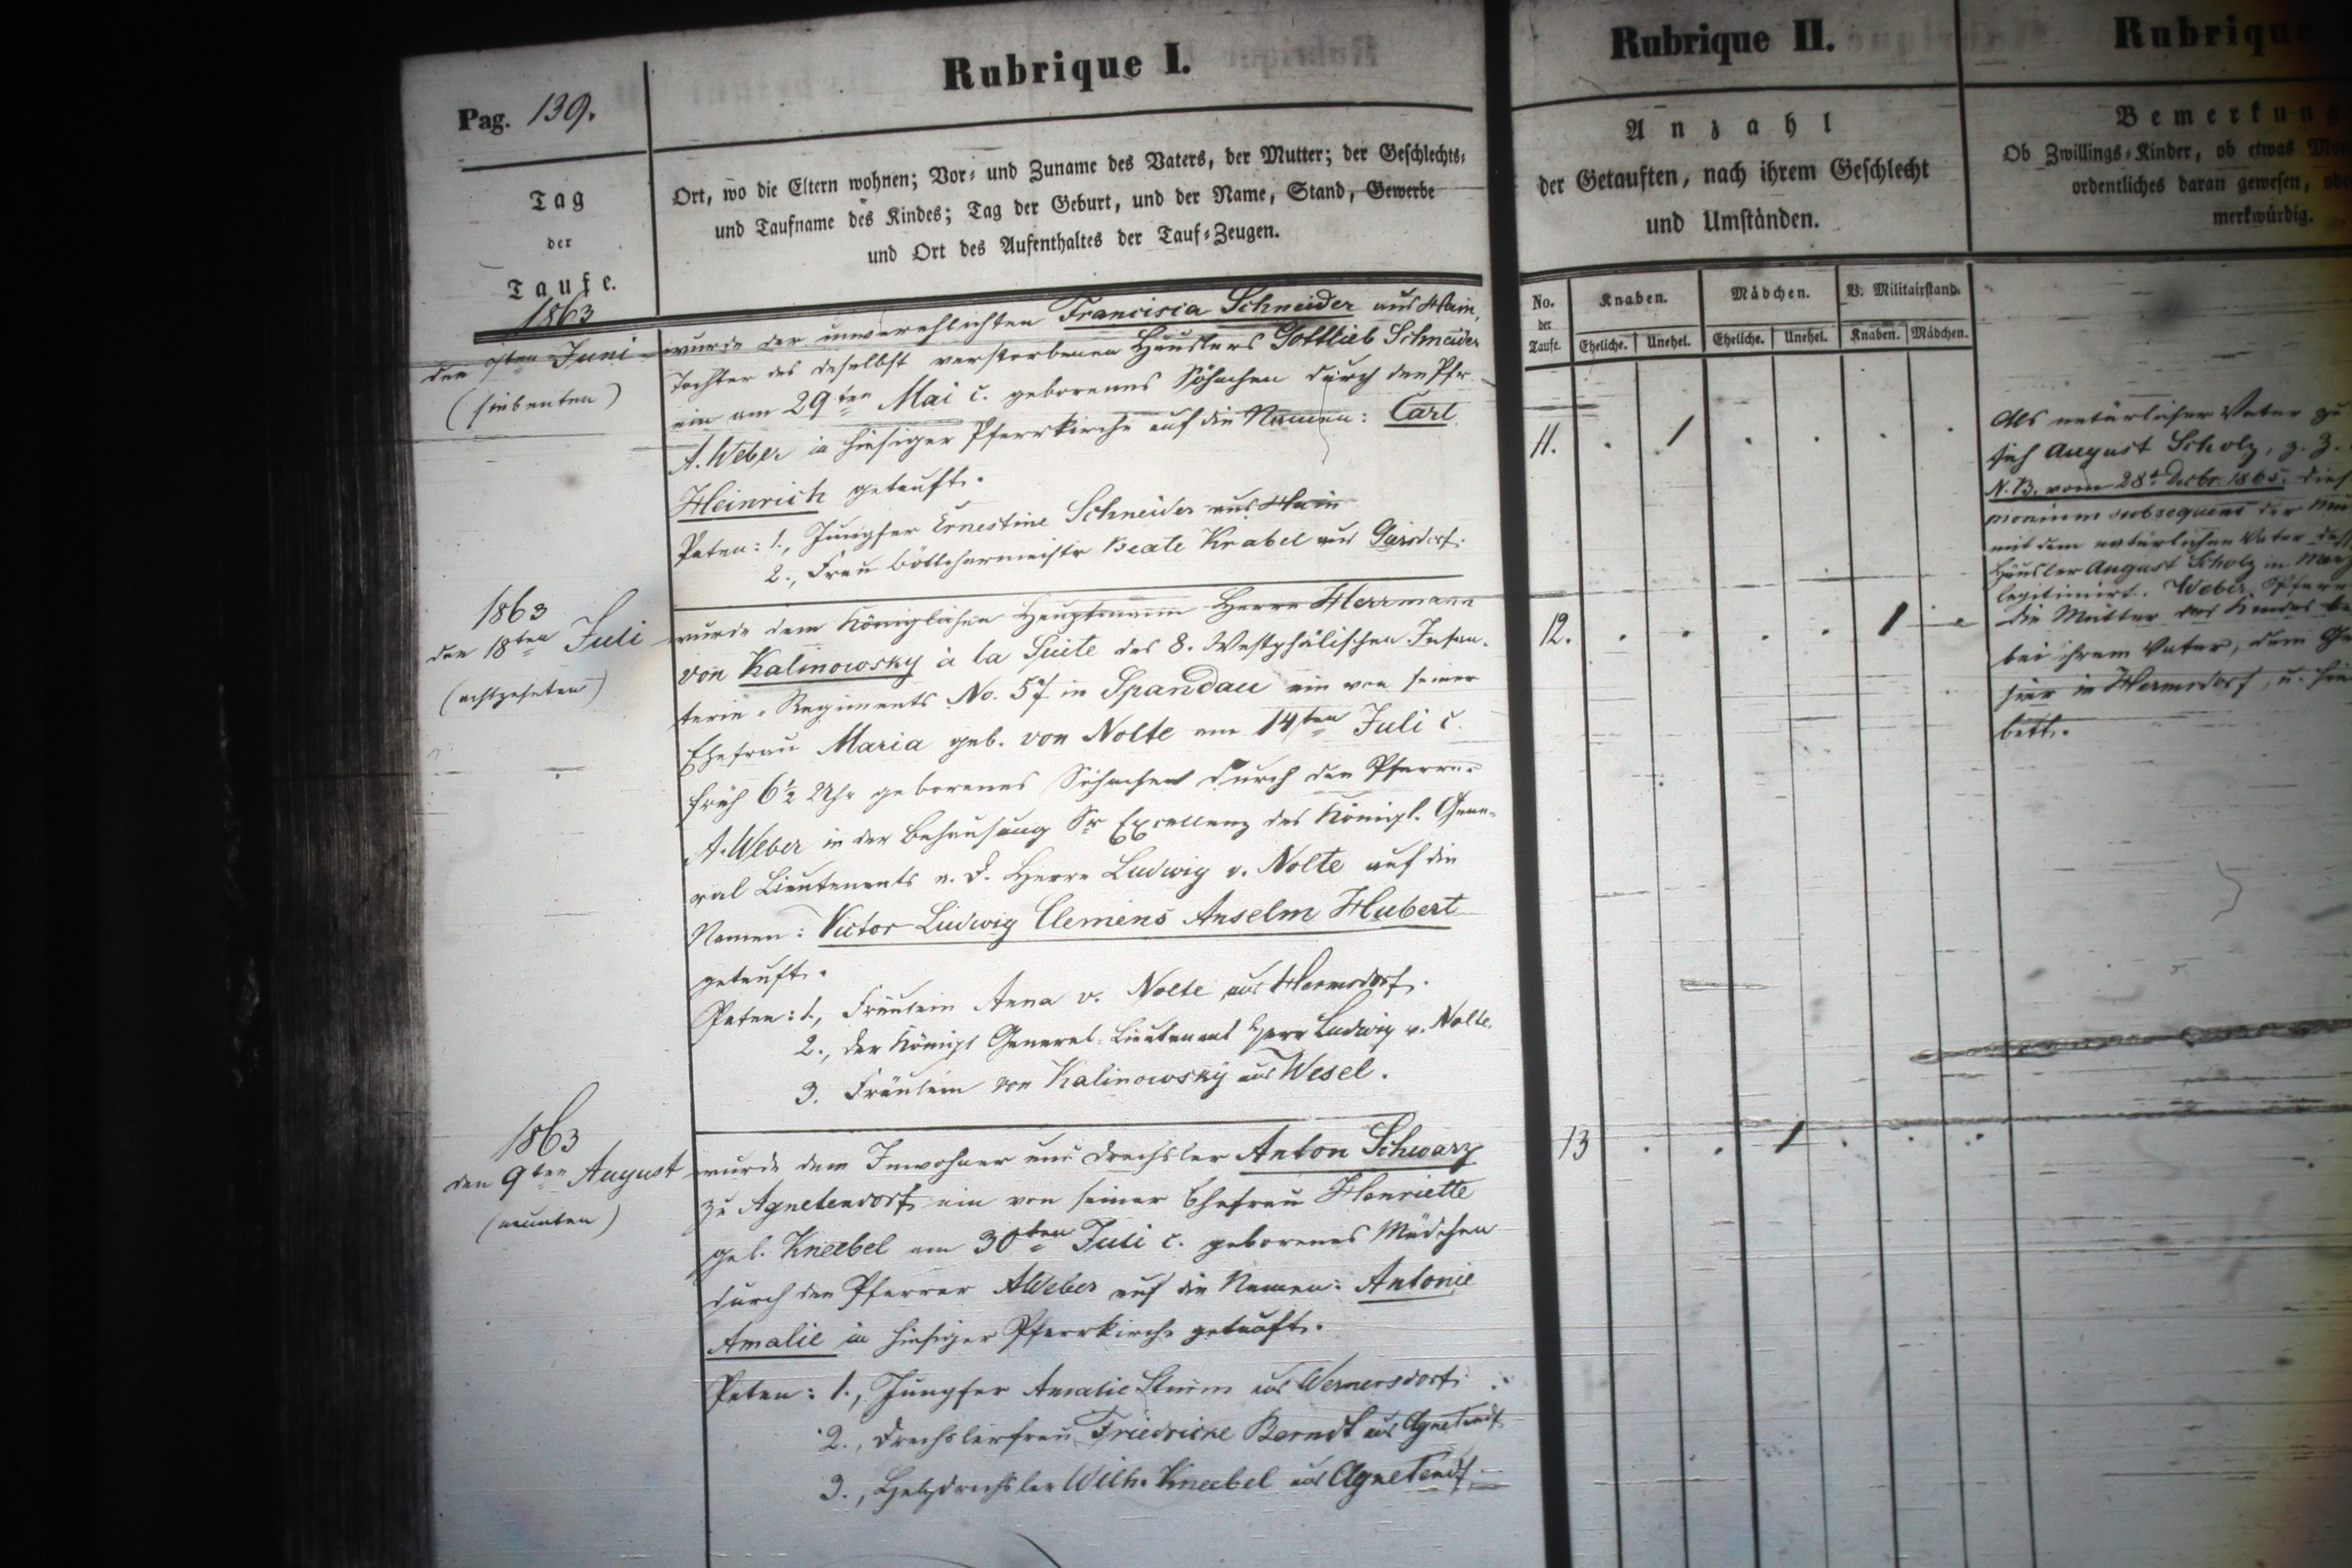 Pag. 139.
Tag
der
Taufe.
1863
Rubrique I.
Ort, wo die Eltern wohnen; Vor- und Zuname des Vaters, der Mutter; der Geschlechts-
und Taufname des Kindes; Tag der Geburt, und der Name, Stand, Gewerbe
und Ort des Aufenthaltes der Tauf-Zeugen.
Rubrique II.
Anzahl
der Getauften, nach ihrem Geschlecht
und Umständen.
No. der Taufe.
Knaben. Mädchen. V. Militairstand.
Eheliche. Unehel. Eheliche. Unehel. Knaben. Mädchen.
Rubrique
Bemerkung
Ob Zwillings-Kinder, ob etwas
ordentliches daran gewesen,
merkwürdig.
den 7ten Juni
(siebenten)
wurde der unverehlichten Francisca Schneider aus Hain,
Tochter des daselbst verstorbenen Häuslers Gottlieb Schneider
ein am 29ten Mai c. geborenes Söhnchen durch den Pfr.
A. Weber in hiesiger Pfarrkirche auf die Namen: Carl
Heinrich getauft.
Paten: 1., Jungfer Ernestine Schneider aus Hain
2., Frau Böttchermeistr Beate Krabel aus
11.
Als natürlicher Vater
sich August Scholz, z. Z.
N. B. vom 28t Decbr. 1865.
subsequens der
mit dem natürlichen Vater
Häusler August Scholz in
legitimirt. Weber. Pfarrer
1863
den 18ten Juli
(achtzehnten)
wurde dem Königlichen Hauptmann Herrn Herrmann
von Kalinowsky à la Suite des 8. Westphälischen Infan-
terie-Regiments No. 57 in Spandau ein von seiner
Ehefrau Maria geb. von Nolte am 14ten Juli c.
früh 6½ Uhr geborenes Söhnchen durch den Pfarrer
A. Weber in der Behausung Sr Excellenz des Königl. Gene-
ral Lieutenants a. D. Herrn Ludwig v. Nolte auf die
Namen: Victor Ludwig Clemens Anselm Hubert
getauft.
Paten: 1., Fräulein Anna v. Nolte aus Hermsdorf.
2., der Königl General-Lieutenant Herr Ludwig v. Nolte.
3. Fräulein von Kalinowsky aus Wesel.
12.
Die Mutter des Kindes
bei ihrem Vater, dem
hier in Hermsdorf, u.
1863
den 9ten August
(neunten)
wurde dem Inwohner und Drechsler Anton Schwarz
zu Agnetendorf ein von seiner Ehefrau Henriette
geb. Kneebel am 30ten Juli c. geborenes Mädchen
durch den Pfarrer A Weber auf die Namen: Antonie
Amalie in hiesiger Pfarrkirche getauft.
Paten: 1., Jungfer Amalie Sturm aus Wernersdorf.
2., Drechslerfrau Friedricke Berndt aus Agnetendf.
3., Holzdrechsler Wilh. Kneebel aus Agnetendf.
13